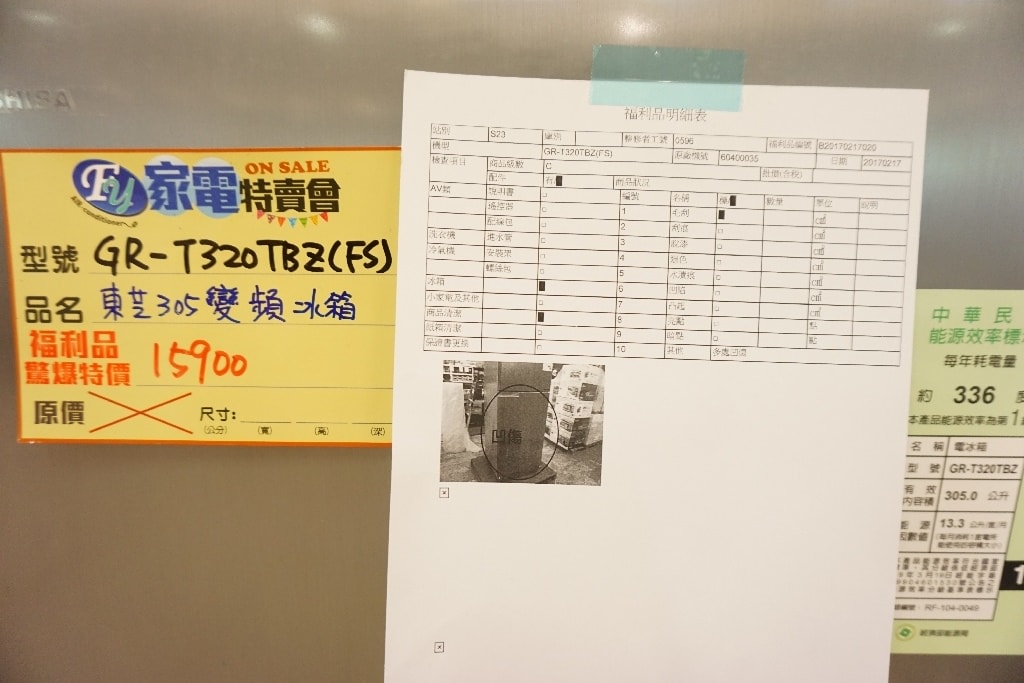 EY 家電特賣會
ON SALE
型號 GR-T320TBZ(FS)
品名 東芝305變頻冰箱
福利品
驚爆特價 15900
原價
尺寸:
(公分) (寬) (高) (深)
福利品明細表
站別 S23 整修者工號 0596 福利品編號 B20170217020
機型 GR-T320TBZ(FS) 原廠機號 60400035 日期 20170217
檢查項目 商品級數 C 批價(含稅)
配件 有 商品狀況
AV類 說明書 編號 名稱 數量 單位 說明
遙控器 1 毛刺 cm²
配線包 2 刮痕 cm²
洗衣機 進水管 3 cm²
冷氣機 安裝架 4 cm²
螺絲包 5 cm²
冰箱 6 凹陷 cm²
小家電及其他 7 凸起
商品清潔 8 亮點 點
紙箱清潔 9 點
保證書更換 10 其他 多處凹傷
凹傷
中華民
能源效率標
每年耗電量
約 336 度
本產品能源效率為第1
名稱 電冰箱
型號 GR-T320TBZ
有效內容積 305.0 公升
能源因數值 13.3 公升/度/月
RF-104-0049
經濟部能源局